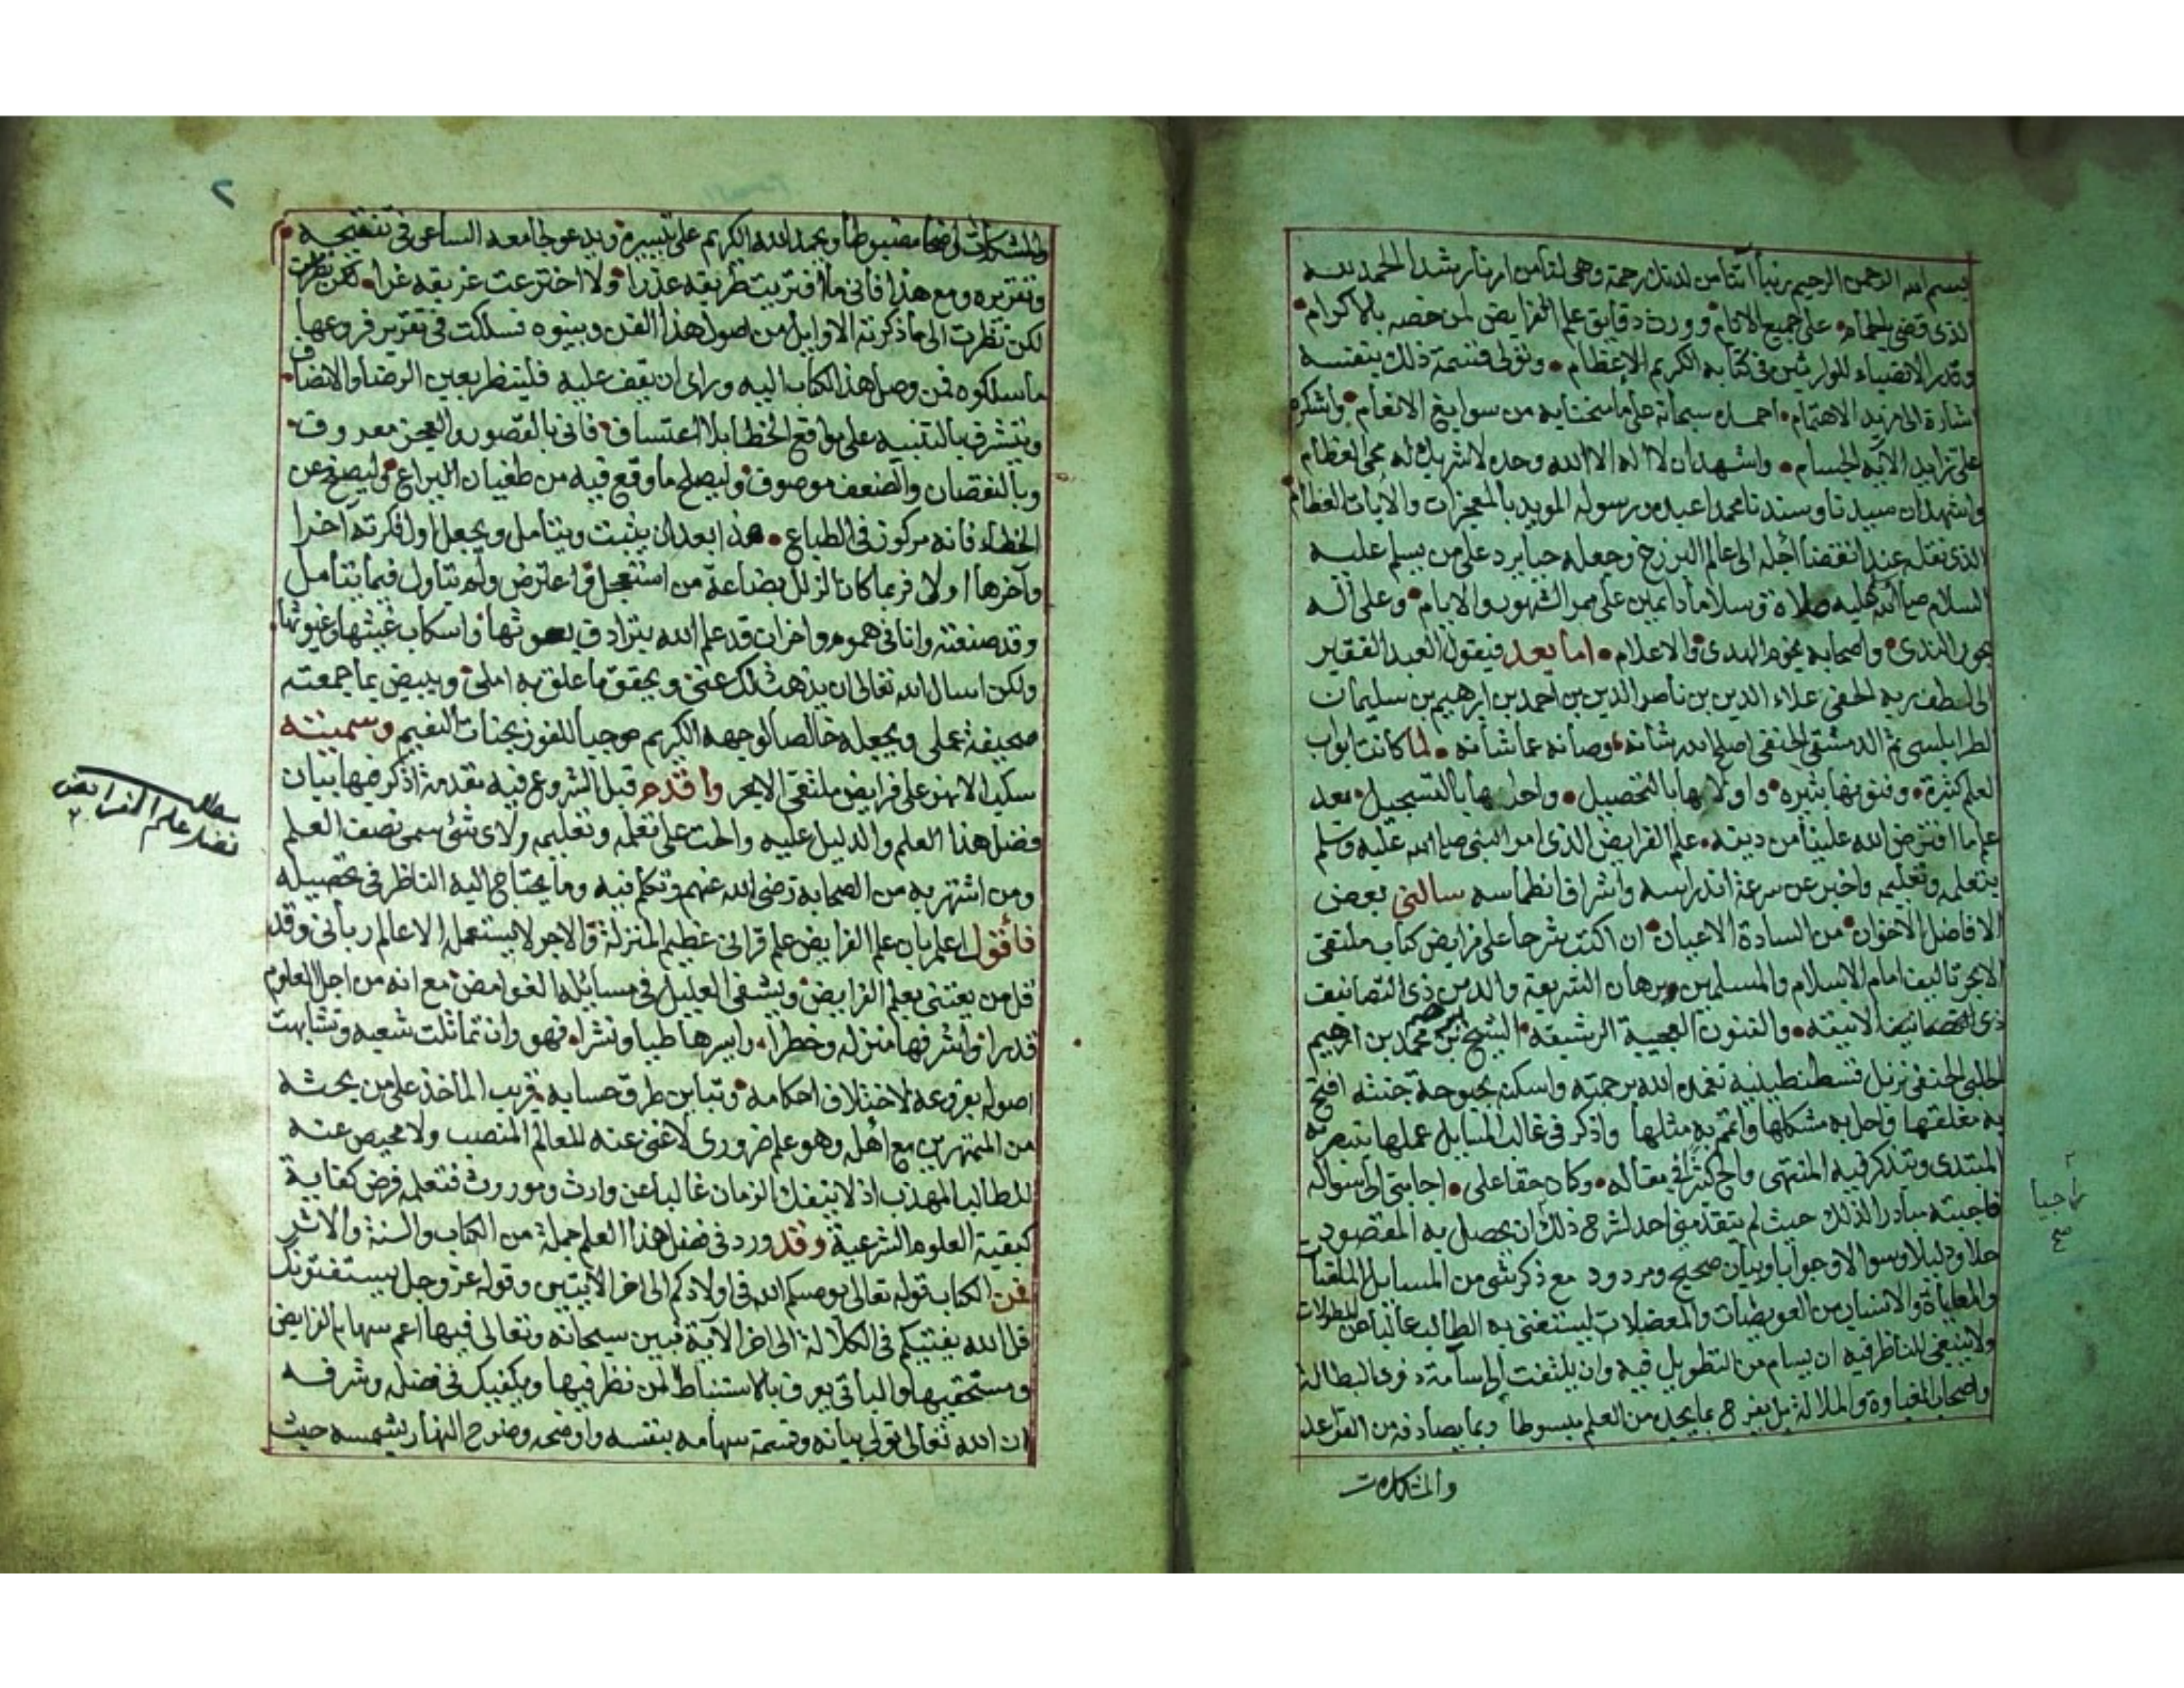 بسم الله الرحمن الرحيم ربنا آتنا من لدنك رحمة وهيئ لنا من امرنا رشدا الحمد لله
الذى قضى بالحمام على جميع الانام وورث دقايق علم الفرايض لمن خصه بالاكرام
وقدر الانصباء للوارثين فى كتابه الكريم الاعظام وتولى قسمة ذلك بنفسه
اشارة الى مزيد الاهتمام احمده سبحانه على ما منحنا به من سوابغ الانعام واشكره
على تزايد الآئه الجسام واشهد ان لا اله الا الله وحده لا شريك له محى العظام
واشهد ان سيدنا وسندنا محمدا عبده ورسوله المويد بالمعجزات والآيات العظام
الذى نقله عند انقضا أجله الى عالم البرزخ وجعله حيا يرد على من يسلم عليه
السلام صلى الله عليه صلاة وسلاما دايمين على ممر الشهور والايام وعلى آله
بحور الندى واصحابه نجوم الهدى والاعلام اما بعد فيقول العبد الفقير
الى لطف ربه الخفى علاء الدين بن ناصر الدين بن احمد بن ابرهيم بن سليمان
الطرابلسى ثم الدمشقى الحنفى اصلح الله شانه وصانه عما شانه لما كانت ابواب
العلم كثيرة وفنونها نثيره واولاها بالتحصيل واحراها بالتسجيل بعد
علم ما افترض الله علينا من دينه علم الفرايض الذى امر النبى صلى الله عليه وسلم
بتعلمه وتعليمه واخبر عن سرعة اندراسه واشراف انطماسه سالنى بعض
الافاضل الاخوان من السادة الاعيان ان اكتب شرحا على فرايض كتاب ملتقى
الابحر تاليف امام الاسلام والمسلمين وبرهان الشريعة والدين ذى التصانيف
ذى التصانيف الانيقه والفنون العجيبة الرشيقة الشيخ ابرهيم بن محمد بن ابرهيم
الحلبى الحنفى نزيل قسطنطينية تغمده الله برحمته واسكنه بحبوحة جنته افتح
به مغلقها واحل به مشكلها واتمم به مثلها واذكر فى غالب المسايل عملها يتبصر به
المبتدى ويتذكر فيه المنتهى والح كثيرا فى مقاله وكاد حقا على اجابتى الى سؤاله
راجيا
صح
فاجبته مبادرا لذلك حيث لم يتقدمنى احد لشرح ذلك ان يحصل به المقصود
حلا ودليلا وسوالا وجوابا وبيان صحيح ومردود مع ذكر شى من المسايل الملقبات
والمعاياة والانساب من العويصات والمعضلات ليستغنى به الطالب غالبا عن المطولات
ولا ينبغى للناظر فيه ان يسام من التطويل فيه وان يلتفت الى سآمة ذوى البطالة
واصحاب الغباوة والملالة بل يفرح بما يجده من العلم مبسوطا وبما يصادفه من القواعد
والمشكلات
٢
والمشكلات واضحا مضبوطا ويحمد الله الكريم على تيسيره ويدعو لجامعه الساعى فى تنقيحه
وتقريره ومع هذا فانى ما افتريت طريقه عذرا ولا اخترعت غريقه غرا
لكن نظرت الى ما ذكرته الاوايل من اصول هذا الفن وبينوه فسلكت فى تقرير فروعها
ما سلكوه فمن وصل هذا الكتاب اليه وراى ان يقف عليه فلينظر بعين الرضا والانصاف
ويتشرف بالتنبيه على مواقع الخطا بلا اعتساف فانى بالقصور والعجز معروف
وبالنقصان والضعف موصوف وليصلح ما وقع فيه من طغيان اليراع وليصفح عن
الخطاء فانه مركوز فى الطباع هذا بعد ان يثبت ويتأمل ويجعل اول فكرته آخرا
وآخرها اولا فربما كان الزلل بضاعة من استعجل واعترض ولم يتاول فيما يتامل
وقد صنفته وانا فى هموم واحزان قد علم الله بترادف بعوثها واسكاب غيثها وغيوثها
ولكن اسال الله تعالى ان يذهب ذلك عنى ويحقق ما علق به املى ويبيض بما جمعته
صحيفة عملى ويجعله خالصا لوجهه الكريم موجبا للفوز بجنات النعيم وسميته
سكب الانهر على فرايض ملتقى الابحر واقدم قبل الشروع فيه مقدمة اذكر فيها بيان
مطلب
فضل علم الفرايض
فضل هذا العلم والدليل عليه والحث على تعلمه وتعليمه ولاى شئ سمى نصف العلم
ومن اشتهر به من الصحابة رضى الله عنهم وتكلم فيه وما يحتاج اليه الناظر فى تحصيله
فأقول اعلم بان علم الفرايض علم قرانى عظيم المنزلة والاجر لا يستعمله الا عالم ربانى وقد
قل من يعتنى بعلم الفرايض ويشفى العليل فى مسائله الغوامض مع انه من اجل العلوم
قدرا واشرفها منزله وخطرا وايسرها طيا ونشرا فهو وان تماثلت شعبه وتشابهت
اصوله بفروعه لاختلاف احكامه وتباين طرق حسابه قريب الماخذ على من بحثه
من المتمهرين مع اهله وهو علم ضرورى لا غنى عنه للعالم المنصب ولا محيص عنه
للطالب المهذب اذ لا ينفك الزمان غالبا عن وارث وموروث فتعلمه فرض كفاية
كبقية العلوم الشرعية وقد ورد فى فضل هذا العلم جملة من الكتاب والسنة والاثر
فمن الكتاب قوله تعالى يوصيكم الله فى اولادكم الى اخر الآيتين وقوله عز وجل يستفتونك
قل الله يفتيكم فى الكلالة الى اخر الآية فبين سبحانه وتعالى فيها اعم سهام الفرايض
ومستحقيها والباقى يعرف بالاستنباط لمن نظر فيها ويكفيك فى فضله وشرفه
ان الله تعالى تولى بيانه وقسمة سهامه بنفسه واوضحه وضوح النهار بشمسه حيث